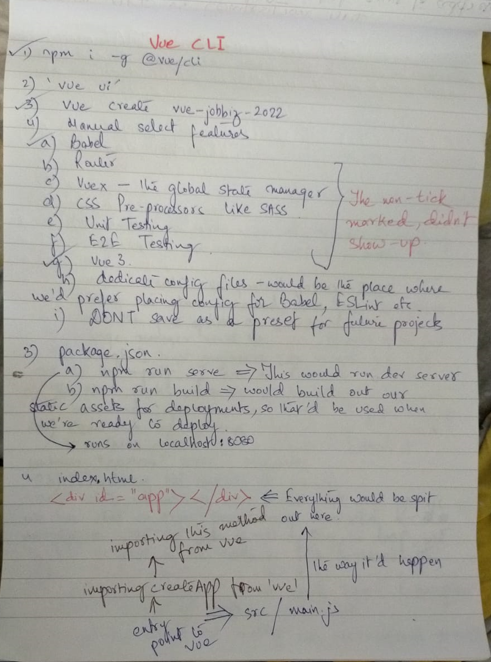 Vue CLI
1) npm i -g @vue/cli
2) 'vue ui'
3) vue create vue-jobbiz-2022
4) Manual select features
a) Babel
b) Router
c) Vuex – the global state manager
d) CSS Pre-processors like SASS
e) Unit Testing
f) E2E Testing
g) Vue 3.
The non-tick
marked, didn't
show-up.
h) dedicate config files – would be the place where
we'd prefer placing config for Babel, ESLint etc.
i) DONT save as a preset for future projects
3) package.json.
a) npm run serve ⇒ This would run dev server
b) npm run build ⇒ would build out our
static assets for deployments, so that'd be used when
we're ready to deploy.
→ runs on localhost:8080
4 index.html.
<div id="app"></div> ⇐ Everything would be spit
out here.
importing this method
from vue
importing createApp from 'vue'
the way it'd happen
entry
point to
vue
⇒ src / main.js